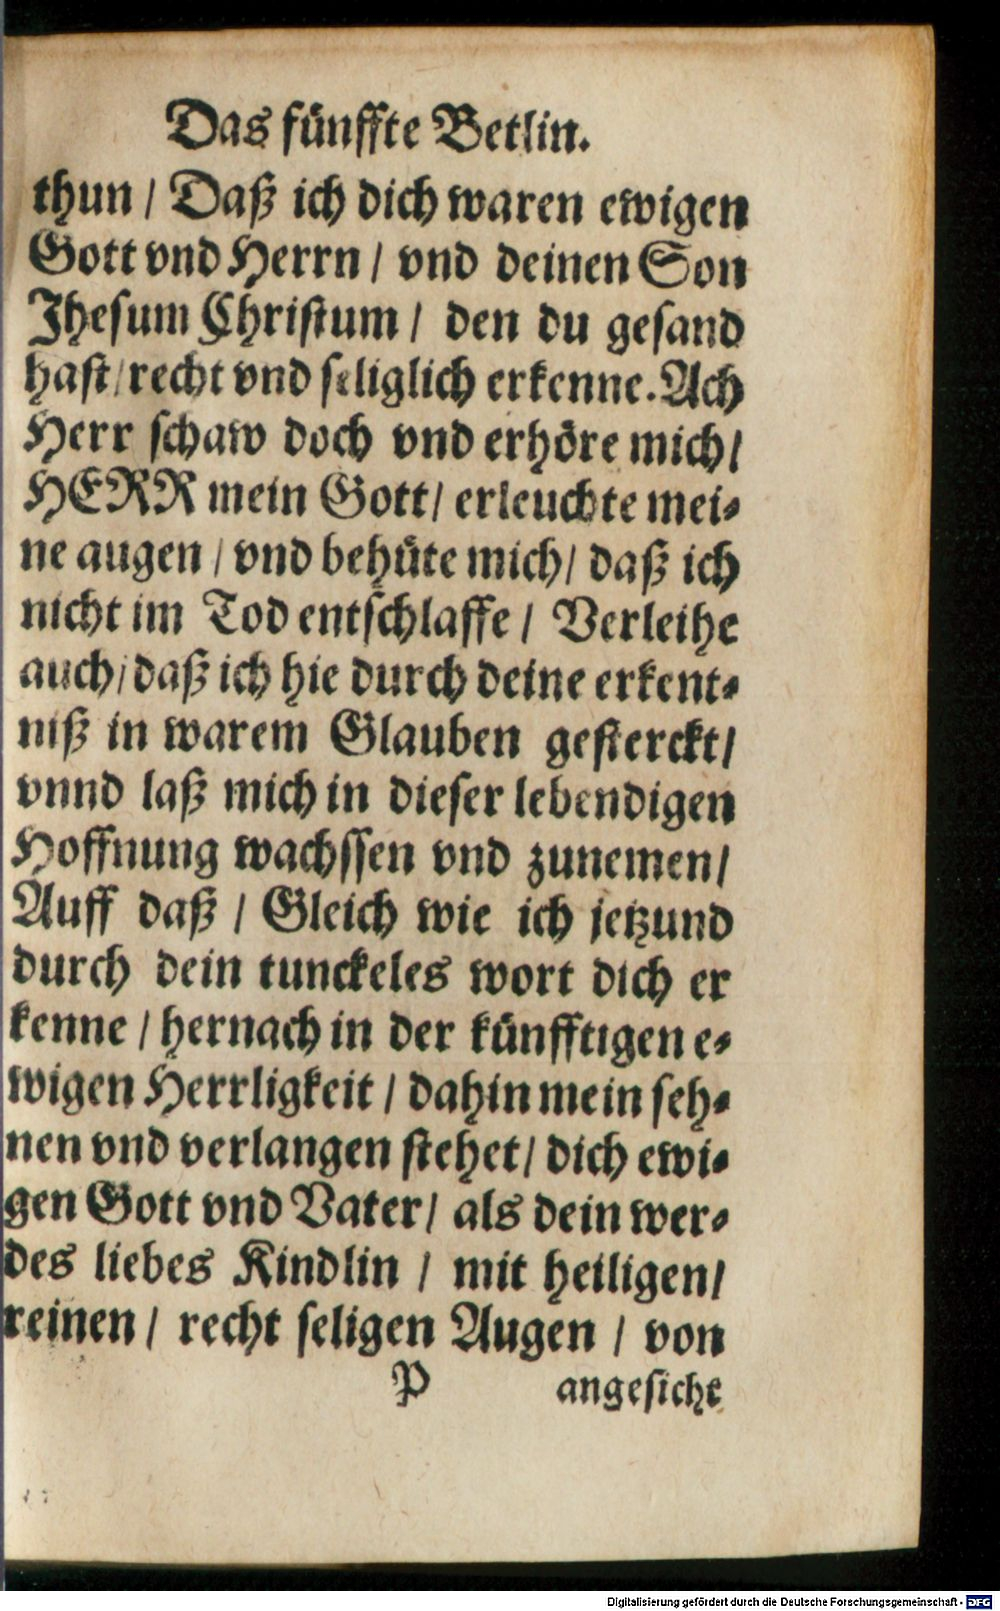 Das fünffte Betlin.
thun / Daß ich dich waren ewigen
Gott vnd Herrn / vnd deinen Son
Jhesum Christum / den du gesand
hast / recht vnd seliglich erkenne. Ach
Herr schaw doch vnd erhöre mich /
HERR mein Gott / erleuchte mei-
ne augen / vnd behüte mich / daß ich
nicht im Tod entschlaffe / Verleihe
auch / daß ich hie durch deine erkent-
niß in warem Glauben gesterckt /
vnnd laß mich in dieser lebendigen
Hoffnung wachssen vnd zunemen /
Auff daß / Gleich wie ich jetzund
durch dein tunckeles wort dich er
kenne / hernach in der künfftigen e-
wigen Herrligkeit / dahin mein seh-
nen vnd verlangen stehet / dich ewi-
gen Gott vnd Vater / als dein wer-
des liebes Kindlin / mit heiligen /
reinen / recht seligen Augen / von
P angesicht
Digitalisierung gefördert durch die Deutsche Forschungsgemeinschaft - DFG